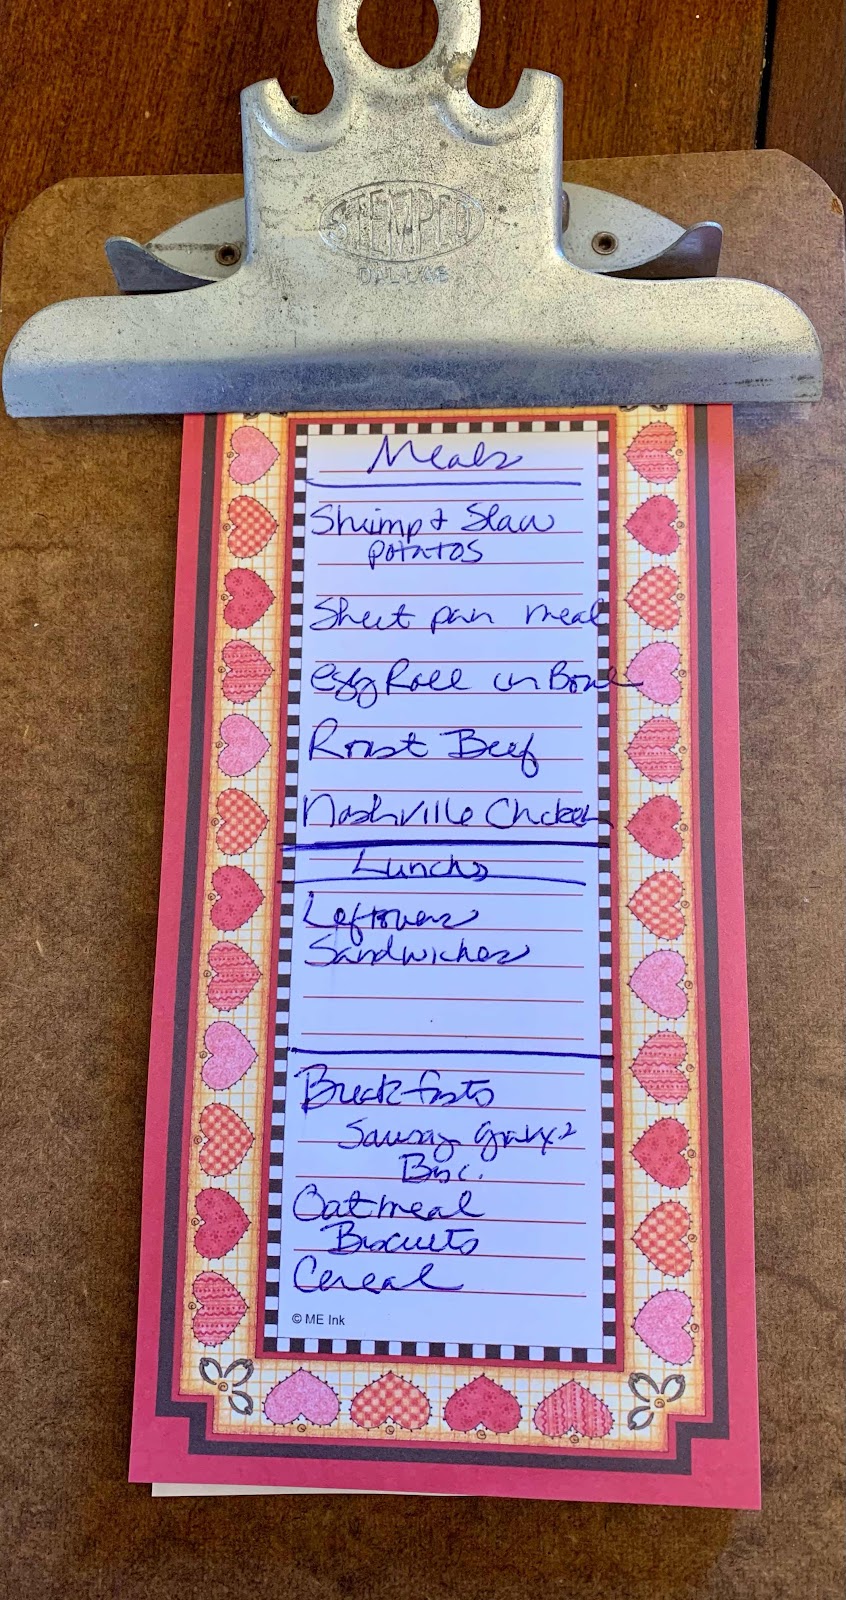 Meals
Shrimp & Slaw
potatos
Sheet pan meal
Egg Roll in Bowl
Roast Beef
Nashville Chicken
Lunchs
Leftovers
Sandwiches
Breakfasts
Sausag Gravy
Bisc.
Oatmeal
Biscuits
Cereal
© ME Ink